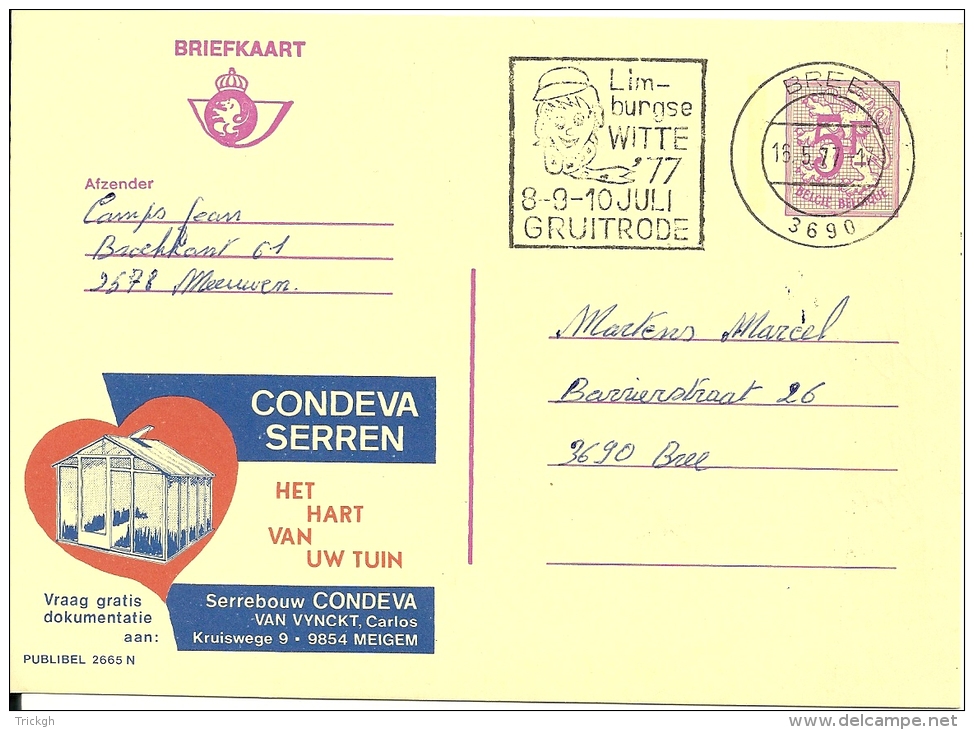 BRIEFKAART
Afzender
Camps Jean
Broekkant 61
3578 Meeuwen.
Lim-
burgse
WITTE
'77
8-9-10 JULI
GRUITRODE
BREE
16.5.77
3690
5F
BELGIE BELGIQUE
Martens Marcel
Barrierstraat 26
3690 Bree
CONDEVA
SERREN
HET
HART
VAN
UW TUIN
Vraag gratis
dokumentatie
aan:
Serrebouw CONDEVA
VAN VYNCKT, Carlos
Kruiswege 9 - 9854 MEIGEM
PUBLIBEL 2665 N
Trickgh
delcampe.net